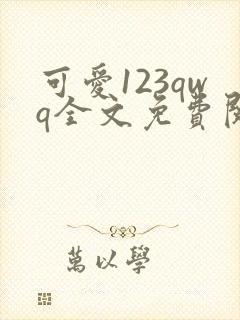 可愛123qw
q全文免費閱
萬以學